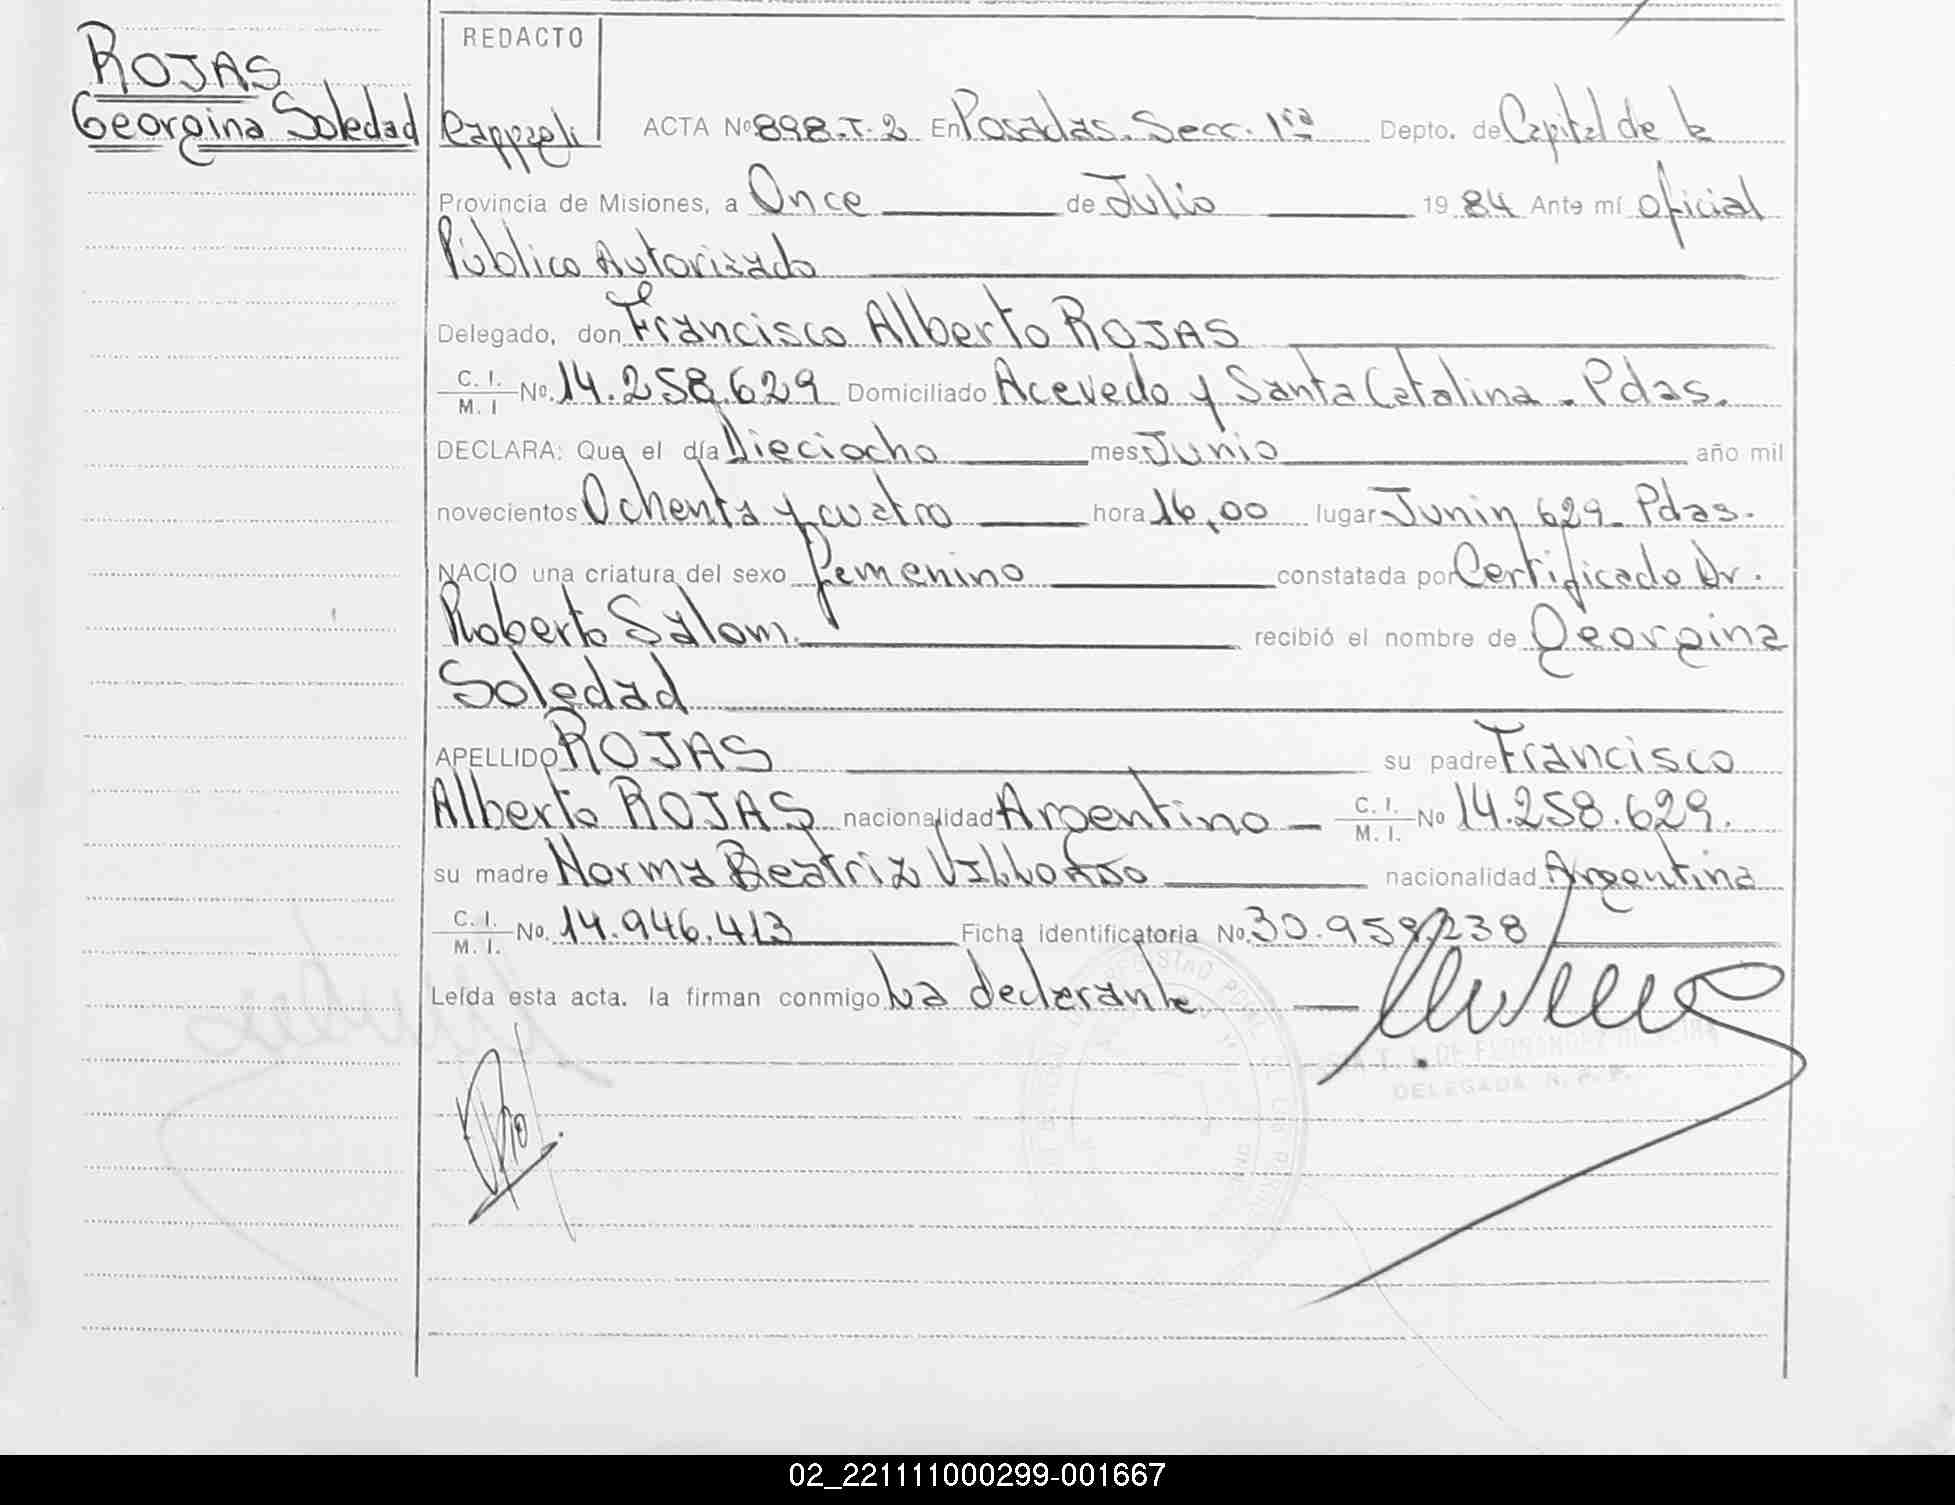 ROJAS
Georgina Soledad
REDACTO
ACTA Nº 898.T.2 En Posadas. Secc. 1ra Depto. de Capital de la
Provincia de Misiones, a Once de Julio 19 84 Ante mí oficial
Público Autorizado
Delegado, don Francisco Alberto ROJAS
C. I. M. I No. 14.258.629 Domiciliado Acevedo y Santa Catalina - Pdas.
DECLARA: Que el día Dieciocho mes Junio año mil
novecientos Ochenta y cuatro hora 16,00 lugar Junin 629 - Pdas.
NACIO una criatura del sexo femenino constatada por Certificado Dr.
Roberto Salom. recibió el nombre de Georgina
Soledad
APELLIDO ROJAS su padre Francisco
Alberto ROJAS nacionalidad Argentino - C. I. M. I. Nº 14.258.629.
su madre Norma Beatriz nacionalidad Argentina
C. I. M. I. No. 14.946.413 Ficha identificatoria No. 30.958.238
Leída esta acta. la firman conmigo La declarante
DELEGADA R. P. P.
02_221111000299-001667